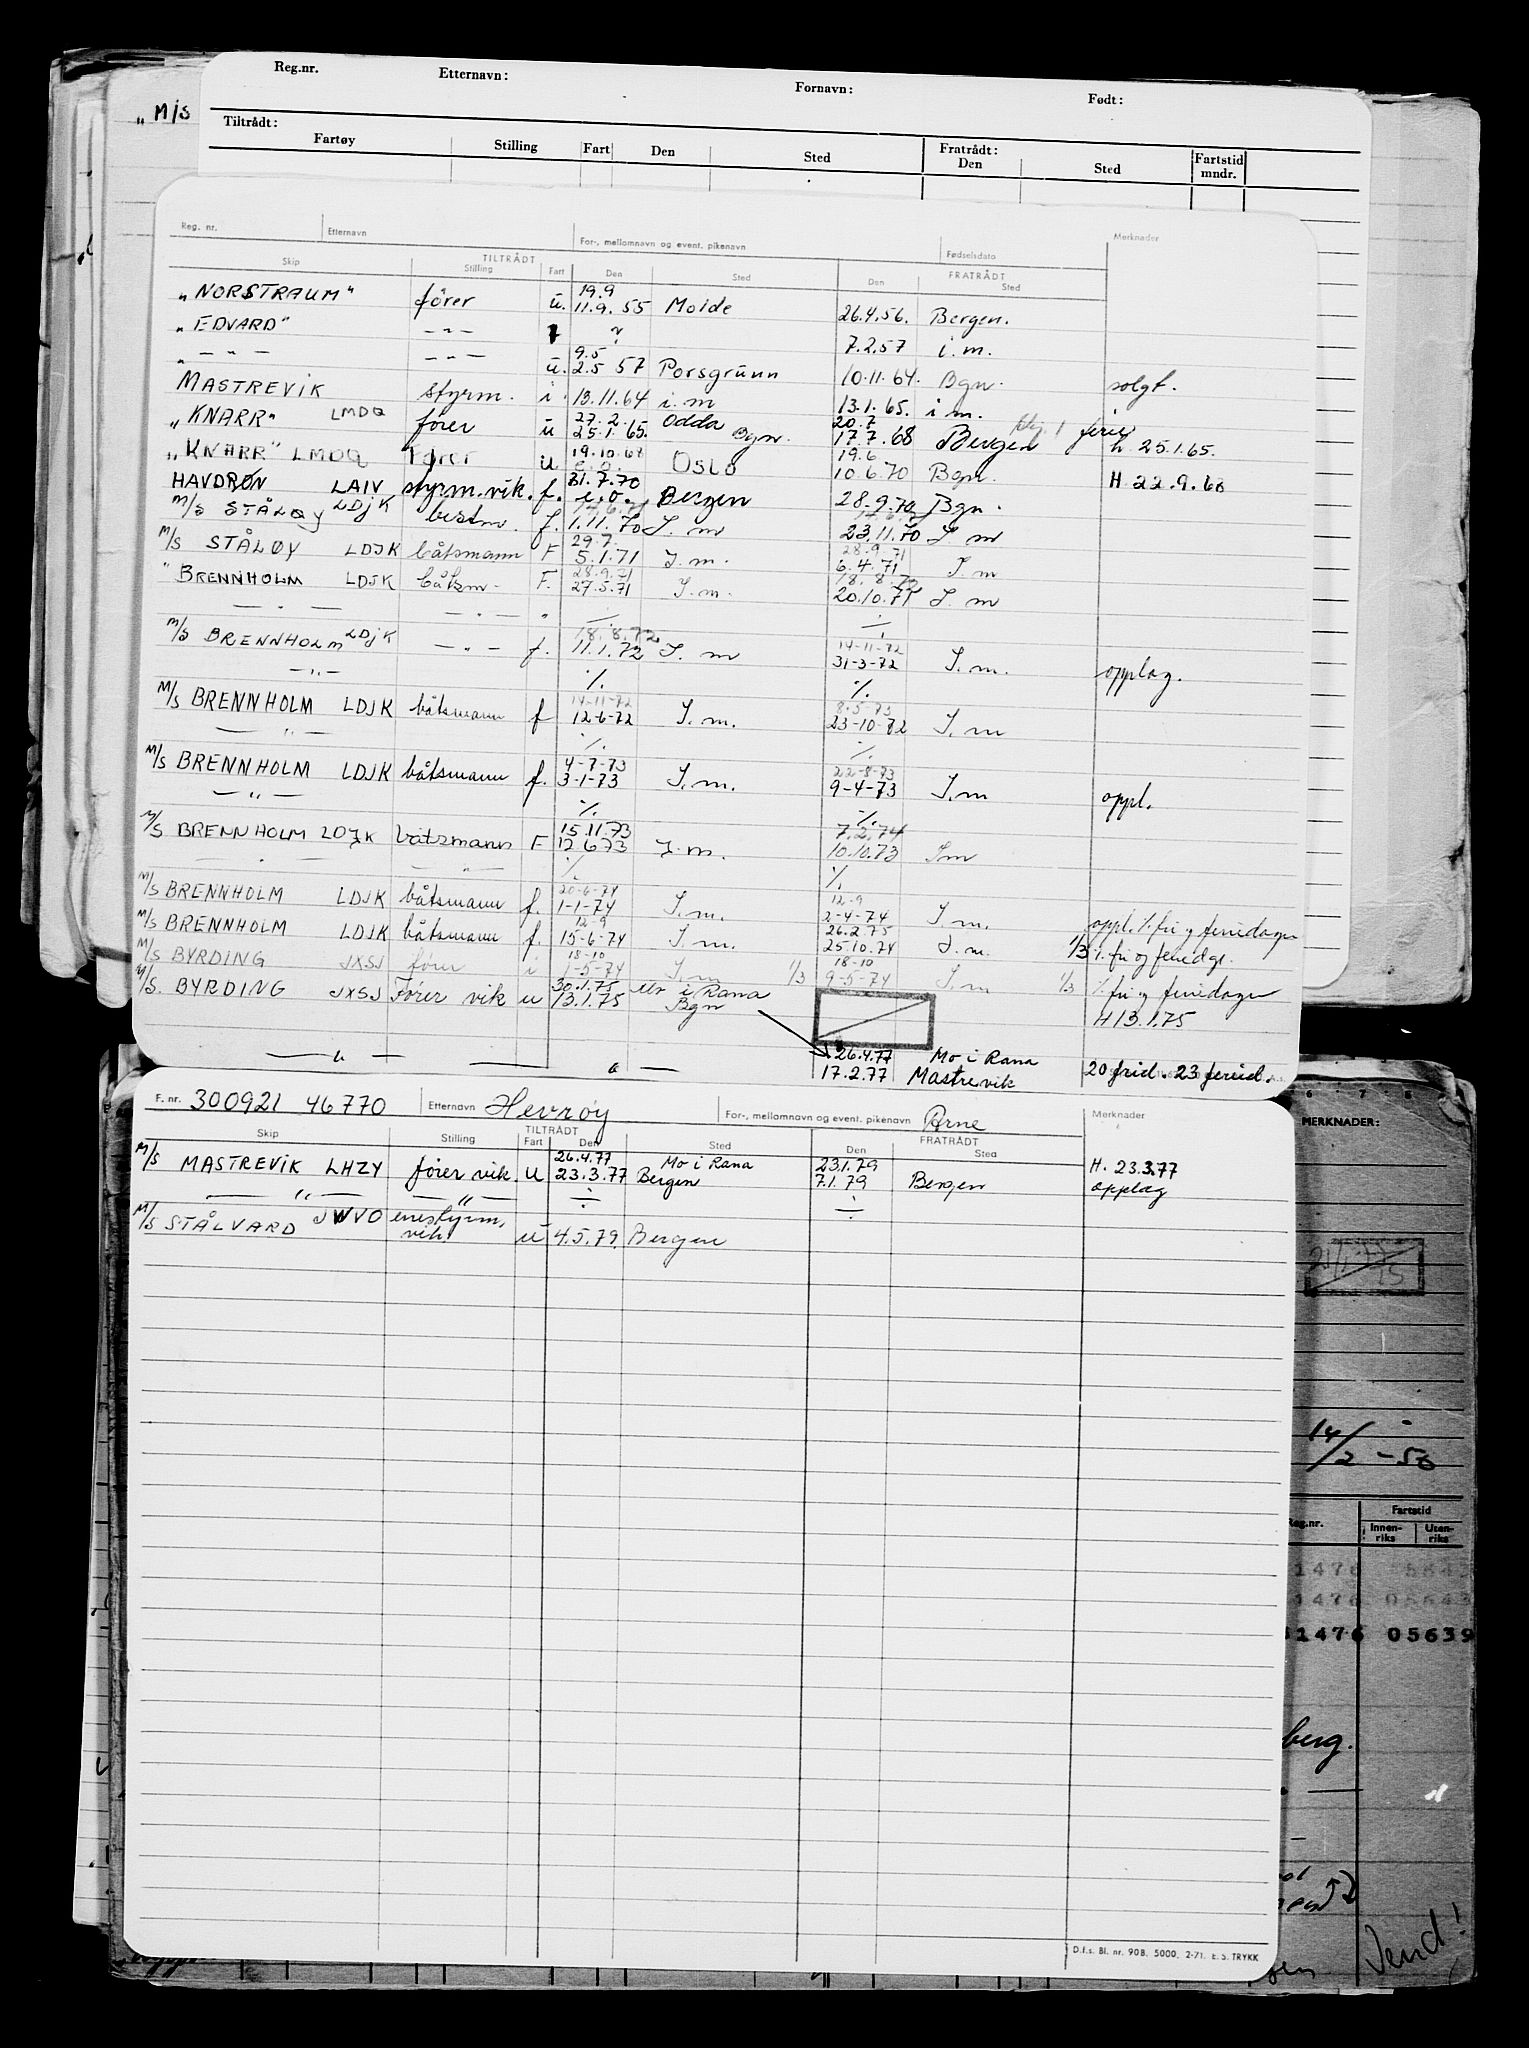 Reg.nr. Etternavn: Fornavn: Født:
„ M/S
Tiltrådt: Fratrådt:
Fartøy Stilling Fart Den Sted Den Sted Fartstid mndr.
Reg. nr. Etternavn For-, mellomnavn og event. pikenavn Fødselsdato Merknader
TILTRÅDT FRATRÅDT
Skip Stilling Fart Den Sted Den Sted
19.9
„NORSTRAUM" fører u. 11.9.55 Molde 26.4.56. Bergen.
„EDVARD" — " — ? 7.2.57 i.m.
9.5
„ — " — — " — u. 2.5 57 Porsgrunn 10.11.64. Bgn. solgt.
MASTREVIK styrm. i 13.11.64 i.m 13.1.65. i m.
27.2. Odda 20.7
„KNARR" LMDQ fører u 25.1.65. Bgn. 17.7.68 Bergen ferie h. 25.1.65.
19.10.68 19.6
„KNARR" LMDQ fører u e.o. Oslo 10.6.70 Bgn. H 22.9.68
31.7.70
HAVDRØN LAIV styrm.vik. f. e.o. Bergen 28.9.70 Bgn.
M/S STÅLØY LDJK bestm. f. 1.11.70 I. m 23.11.70 I m
29.7. 28.9.71
M/S STÅLØY LDJK båtsmann F 5.1.71 I.m. 6.4.71 I m
28.9.71 18.8.72
" BRENNHOLM LDJK båtsm. F. 27.5.71 I.m. 20.10.71 I. m
— " — — " — " ./. ./.
18.8.72 14-11-72
M/S BRENNHOLM LDJK — " — f. 11.1.72 I. m 31-3-72 I.m. opplag.
— " — ./. ./.
14-11-72 8.5.73
M/S BRENNHOLM LDJK båtsmann f 12-6-72 I.m. 23-10-72 I.m
— " — ./. ./.
4-7-73 22-8-73
M/S BRENNHOLM LDJK båtsmann f. 3-1-73 I.m. 9-4-73 I.m oppl.
— " — ./. ./.
15.11.73 7.2.74
M/S BRENNHOLM LDJK båtsmann F 12.6.73 I.m. 10.10.73 I m
— " — — " — ./. ./.
20-6-74 12-9
M/S BRENNHOLM LDJK båtsmann f. 1-1-74 I.m. 2-4-74 I.m. oppl. ./. fri og feriedager
12-9 26.2.75
M/S BRENNHOLM LDJK båtsmann f. 15-6-74 I.m. 25.10.74 I.m. 1/3 ./. fri og feriedgr.
18-10 18-10
M/S BYRDING JXSJ fører i 1-5-74 I.m 1/3 9-5-74 I.m 1/3 ./. fri og feriedager
30.1.75 Mo i Rana
M/S. BYRDING JXSJ Fører vik u 13.1.75 Bgn H 13.1.75
26.4.77 Mo i Rana
— " — — " — 17.2.77 Mastrevik 20 frid. 23 feried.
F. nr. 300921 46770 Etternavn Hevrøy For-, mellomnavn og event. pikenavn Arne Merknader
TILTRÅDT FRATRÅDT
Skip Stilling Fart Den Sted Den Sted
26.4.77 Mo i Rana 23.1.79 H. 23.3.77
M/S MASTREVIK LHZY fører vik. U 23.3.77 Bergen 7.1.79 Bergen opplag
— " — — " — ÷ ÷
M/S STÅLVARD JWVO enestyrm. vik. u 4.5.79. Bergen
D.f.s. Bl. nr. 90B. 5000. 2-71. E. S. TRYKK
6 7 8
MERKNADER:
14/2 -56
Reg.nr. Fartstid
Innen-riks Uten-riks
1476 0564
1476 05643
1476 05639
berg.
Vend!